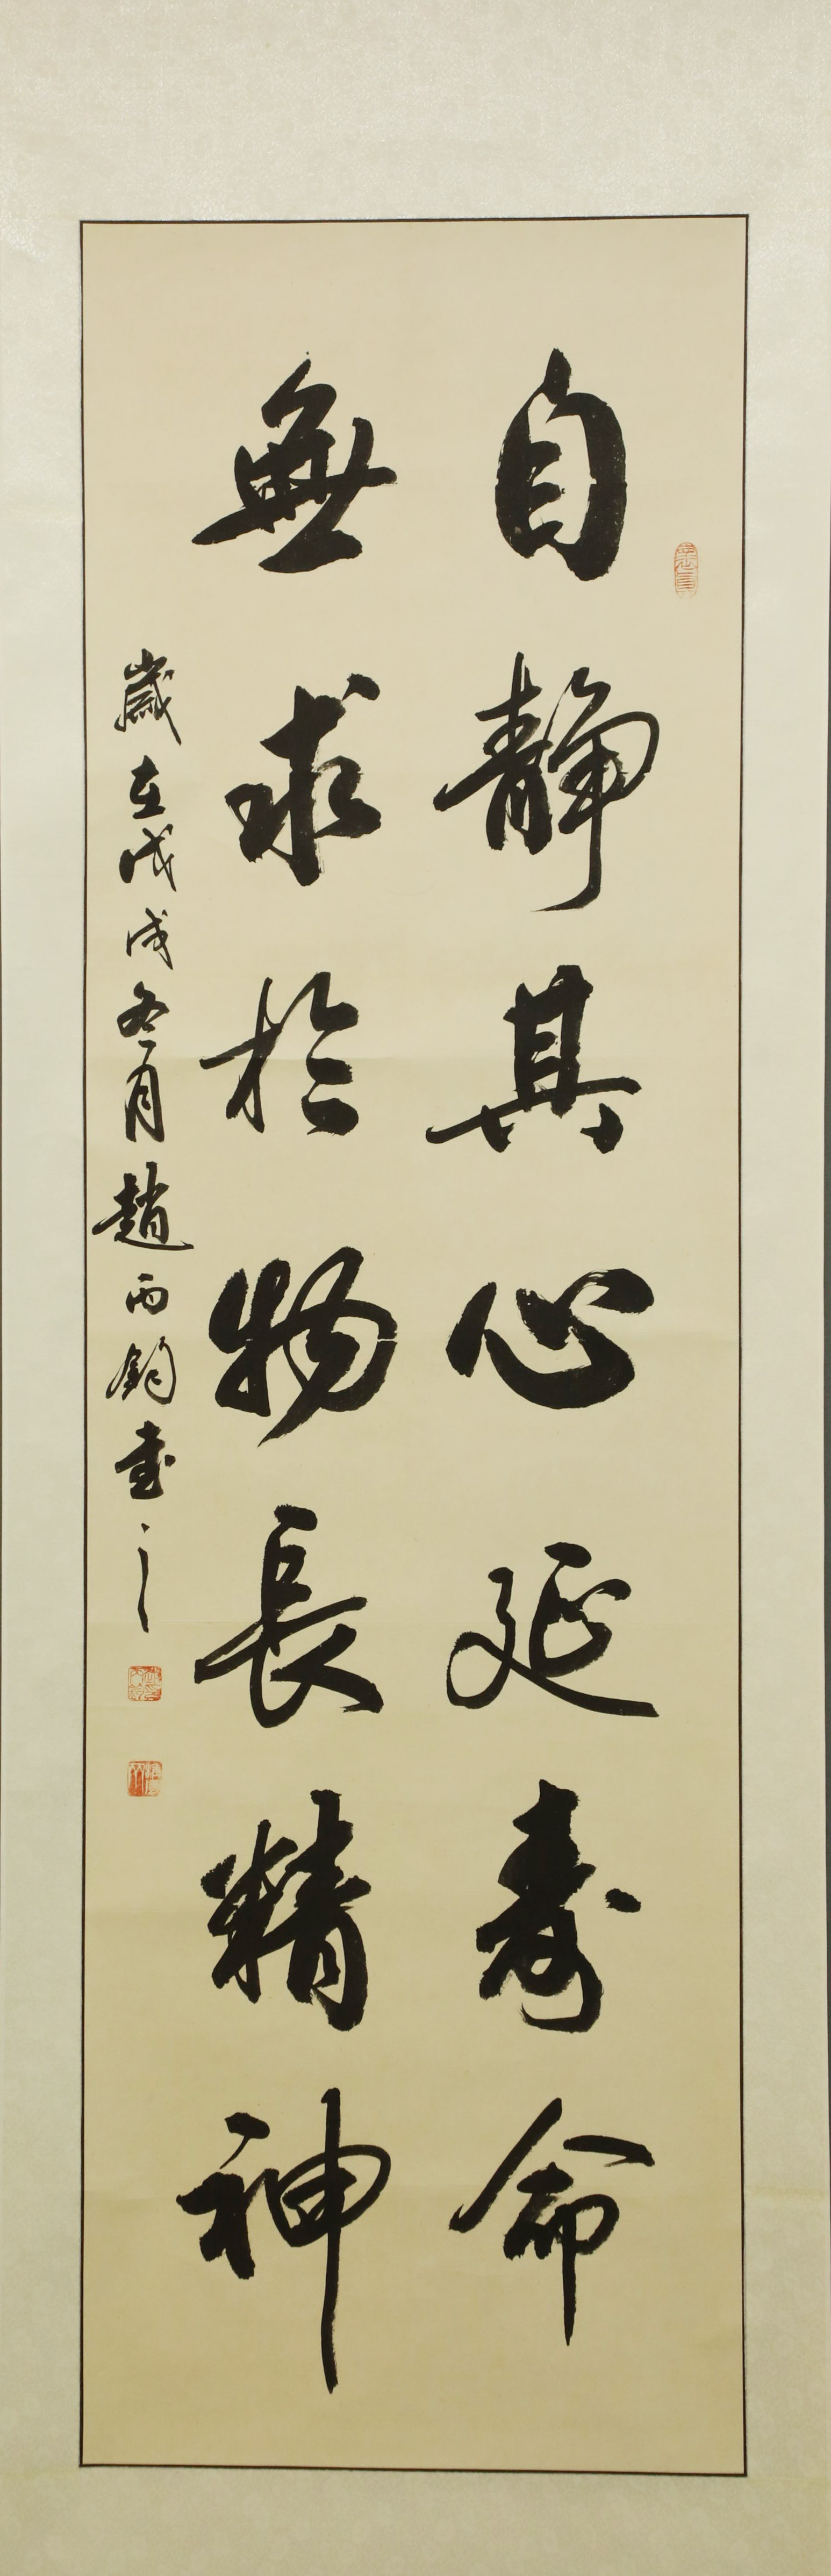 自静其心延壽命
無求於物長精神
歲在戊戌冬月趙丙鈞書之